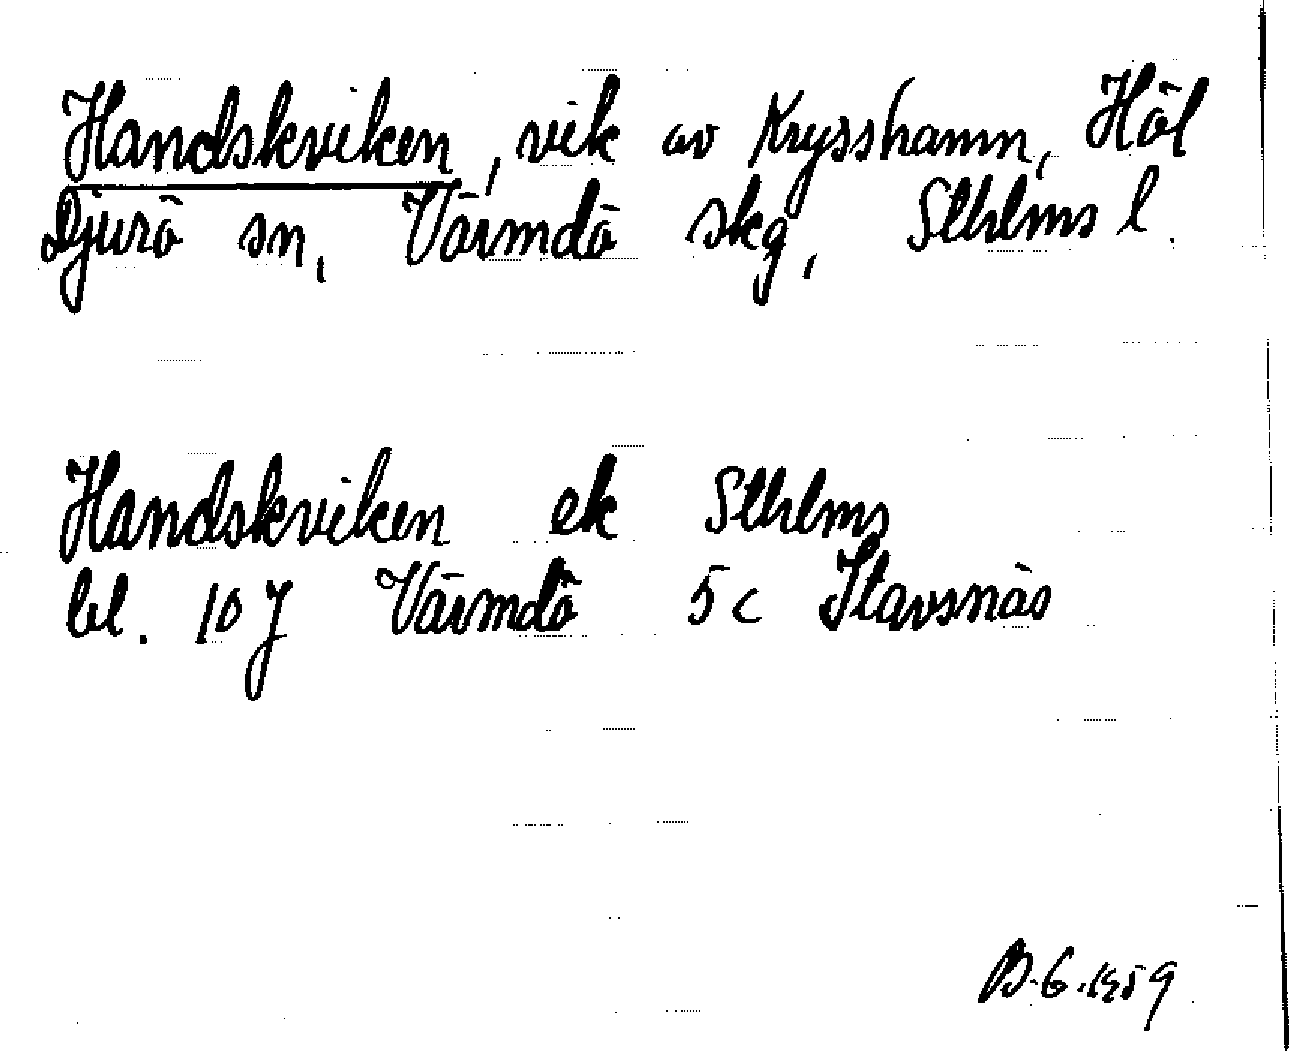 Handskviken, vik av Krysshamn, Höl
Djurö sn, Värmdö skg, Sthlms l.
Handskviken ek Sthlms
bl. 10 J Värmdö 5 c Stavsnäs
B-6.1959